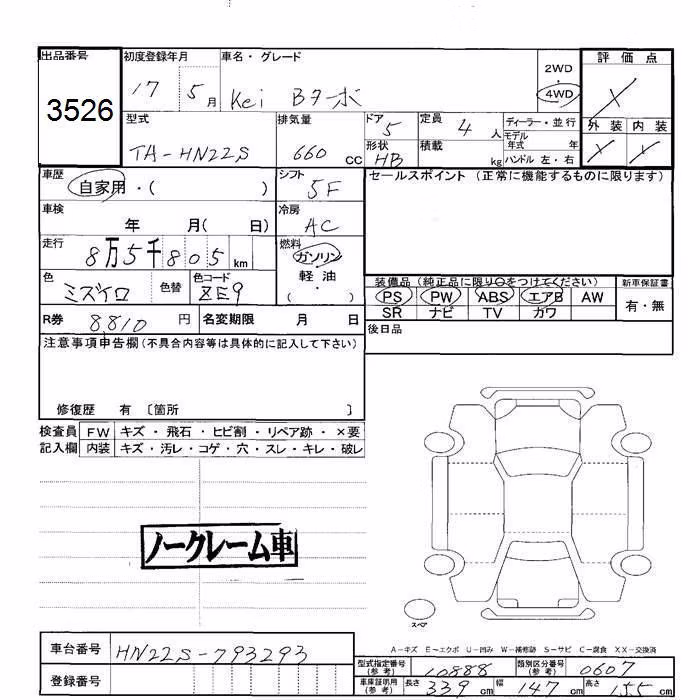 出品番号 初度登録年月 車名・グレード 2WD 評価点
3526 17 5月 Kei Bターボ 4WD X
型式 排気量 ドア 定員 ディーラー・並行 外装 内装
TA-HN22S 660 cc 5 4 人 モデル年式 年 X X
形状 HB 積載 kg ハンドル 左・右
車歴 シフト セールスポイント (正常に機能するものに限ります)
自家用・( ) 5F
車検 冷房
年 月( 日) AC
走行 燃料
8万5千805 km ガソリン・軽油
( )
色 色替 色コード 装備品(純正品に限り○をつけてください) 新車保証書
ミズイロ ZE9 PS PW ABS エアB AW 有・無
SR ナビ TV カワ
R券 8810 円 名変期限 月 日 後日品
注意事項申告欄(不具合内容等は具体的に記入して下さい)
修復歴 有 〔箇所 〕
検査員 FW キズ・飛石・ヒビ割・リペア跡・×要
記入欄 内装 キズ・汚レ・コゲ・穴・スレ・キレ・破レ
ノークレーム車
スペア
A-キズ E-エクボ U-凹み W-補修跡 S-サビ C-腐食 XX-交換済
車台番号 HN22S-793293
型式指定番号(参考) 10888 類別区分番号(参考) 0607
登録番号
車庫証明用(参考) 長さ 339 cm 幅 147 cm 高さ 155 cm